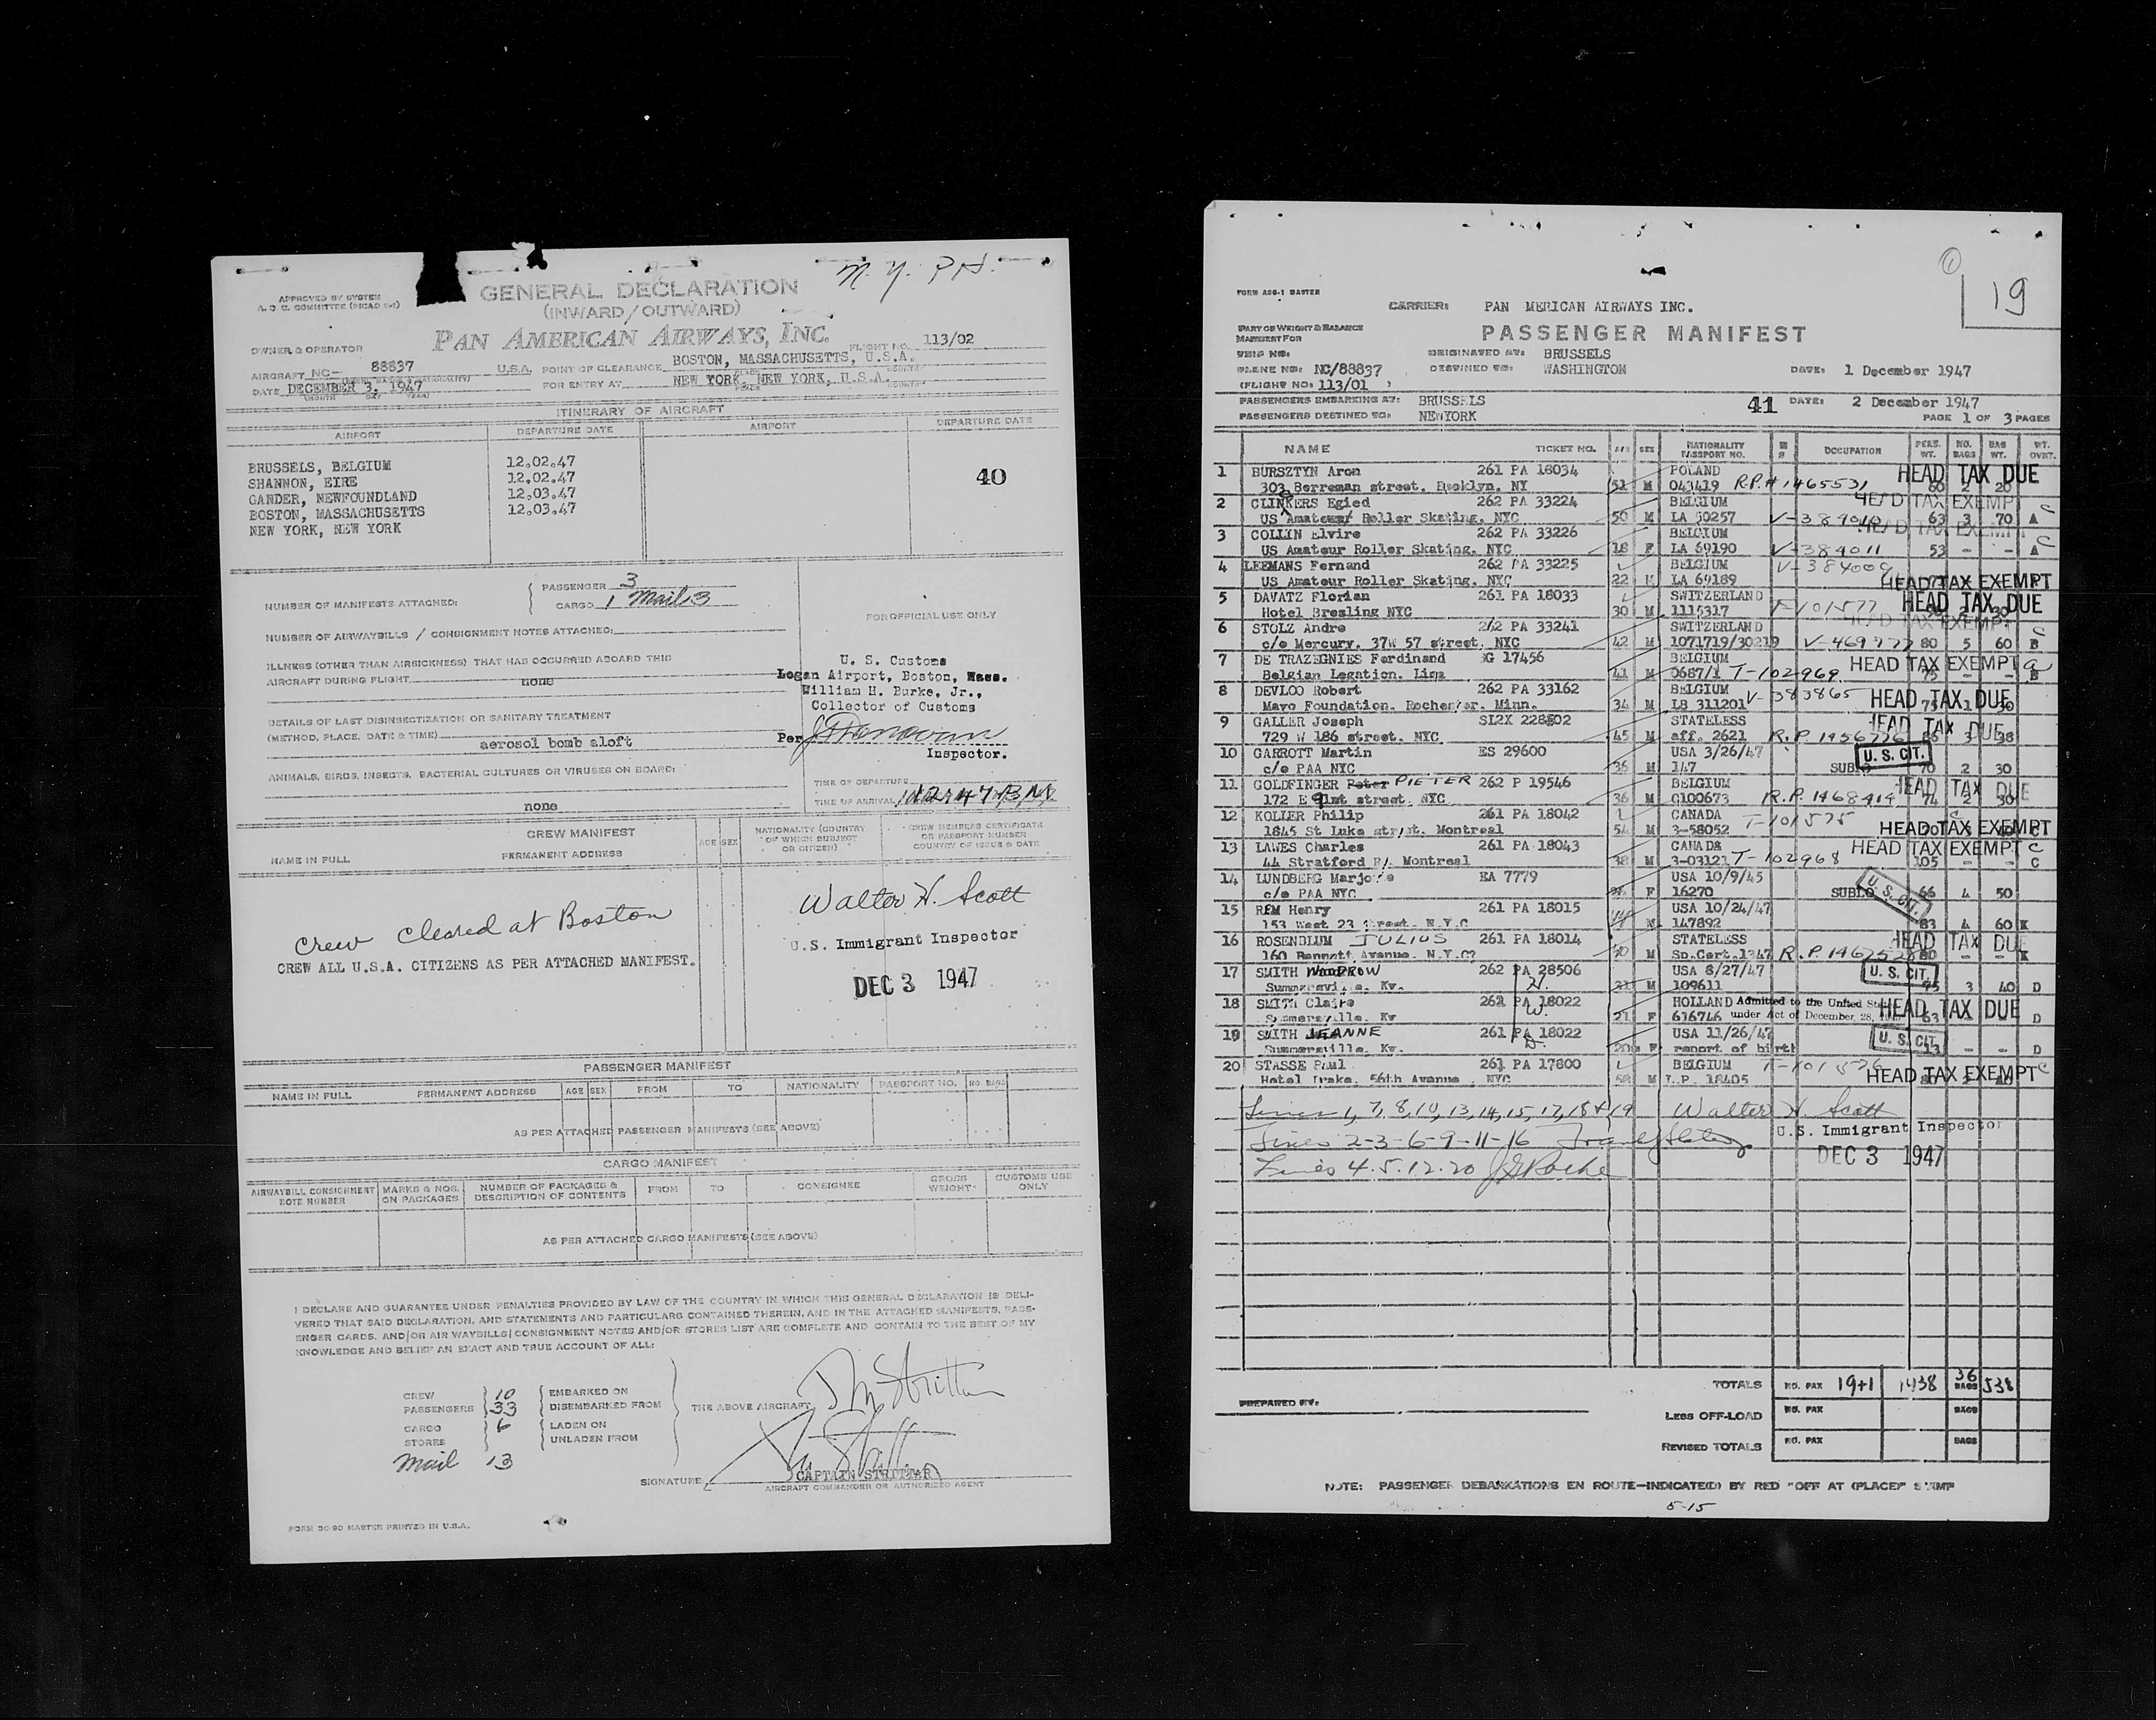 N. Y.
APPROVED BY SYSTEM
GENERAL DECLARATION
(INWARD/OUTWARD)
PAN AMERICAN AIRWAYS, INC.
OWNER & OPERATOR
FLIGHT NO. 113/02
AIRCRAFT NC- 88837 U.S.A. POINT OF CLEARANCE BOSTON, MASSACHUSETTS, U.S.A.
DATE DECEMBER 3, 1947 FOR ENTRY AT NEW YORK, NEW YORK, U.S.A.
ITINERARY OF AIRCRAFT
AIRPORT DEPARTURE DATE AIRPORT DEPARTURE DATE
BRUSSELS, BELGIUM 12.02.47
SHANNON, EIRE 12.02.47
GANDER, NEWFOUNDLAND 12.03.47
BOSTON, MASSACHUSETTS 12.03.47
NEW YORK, NEW YORK
40
NUMBER OF MANIFESTS ATTACHED: PASSENGER 3
CARGO 1 Mail 3
FOR OFFICIAL USE ONLY
NUMBER OF AIRWAYBILLS / CONSIGNMENT NOTES ATTACHED:
ILLNESS (OTHER THAN AIRSICKNESS) THAT HAS OCCURRED ABOARD THIS
AIRCRAFT DURING FLIGHT none
DETAILS OF LAST DISINSECTIZATION OR SANITARY TREATMENT
(METHOD, PLACE, DATE & TIME) aerosol bomb aloft
ANIMALS, BIRDS, INSECTS, BACTERIAL CULTURES OR VIRUSES ON BOARD:
none
U. S. Customs
Logan Airport, Boston, Mass.
William H. Burke, Jr.,
Collector of Customs
Per
Inspector.
TIME OF DEPARTURE
TIME OF ARRIVAL
CREW MANIFEST
NAME IN FULL PERMANENT ADDRESS AGE SEX NATIONALITY (COUNTRY OF WHICH SUBJECT OR CITIZEN) CREW MEMBERS CERTIFICATE OR PASSPORT NUMBER COUNTRY OF ISSUE & DATE
Crew Cleared at Boston
CREW ALL U.S.A. CITIZENS AS PER ATTACHED MANIFEST.
Walter H. Scott
U.S. Immigrant Inspector
DEC 3 1947
PASSENGER MANIFEST
NAME IN FULL PERMANENT ADDRESS AGE SEX FROM TO NATIONALITY PASSPORT NO. NO. BAGS
AS PER ATTACHED PASSENGER MANIFESTS (SEE ABOVE)
CARGO MANIFEST
AIRWAYBILL CONSIGNMENT NOTE NUMBER MARKS & NOS. ON PACKAGES NUMBER OF PACKAGES & DESCRIPTION OF CONTENTS FROM TO CONSIGNEE GROSS WEIGHT CUSTOMS USE ONLY
AS PER ATTACHED CARGO MANIFESTS (SEE ABOVE)
I DECLARE AND GUARANTEE UNDER PENALTIES PROVIDED BY LAW OF THE COUNTRY IN WHICH THIS GENERAL DECLARATION IS DELI-
VERED THAT SAID DECLARATION, AND STATEMENTS AND PARTICULARS CONTAINED THEREIN, AND IN THE ATTACHED MANIFESTS, PASS-
ENGER CARDS, AND/OR AIR WAYBILLS/CONSIGNMENT NOTES AND/OR STORES LIST ARE COMPLETE AND CONTAIN TO THE BEST OF MY
KNOWLEDGE AND BELIEF AN EXACT AND TRUE ACCOUNT OF ALL:
CREW 10 EMBARKED ON
PASSENGERS 33 DISEMBARKED FROM THE ABOVE AIRCRAFT
CARGO 6 LADEN ON
STORES UNLADEN FROM
Mail 13
SIGNATURE CAPTAIN STRITTAR
AIRCRAFT COMMANDER OR AUTHORIZED AGENT
FORM 30-90 MASTER PRINTED IN U.S.A.
1
19
CARRIER: PAN MERICAN AIRWAYS INC.
PART OF WEIGHT & BALANCE
MANIFEST FOR
PASSENGER MANIFEST
SHIP NO: ORIGINATED AT: BRUSSELS
PLANE NO: NC/88837 DESTINED TO: WASHINGTON DATE: 1 December 1947
(FLIGHT NO: 113/01 )
PASSENGERS EMBARKING AT: BRUSSELS 41 DATE: 2 December 1947
PASSENGERS DESTINED TO: NEWYORK PAGE 1 OF 3 PAGES
NAME TICKET NO. AGE SEX NATIONALITY PASSPORT NO. OCCUPATION PERS. WT. NO. BAGS BAG WT. WT. OVRT.
1 BURSZTYN Aron 261 PA 18034 POLAND HEAD TAX DUE
303 Berreman street, NY 51 M 043419 R.P.# 1465531 60 2 20
2 CLINKERS Egied 262 PA 33224 BELGIUM HEAD TAX EXEMPT C
US Amateur Roller Skating, NYC 50 M LA 50257 63 3 70 A
3 COLLIN Elvire 262 PA 33226 BELGIUM HEAD TAX EXEMPT C
US Amateur Roller Skating, NYC 18 F LA 69190 V-384011 53 - - A
4 LEEMANS Fernand 262 PA 33225 BELGIUM V-384009
US Amateur Roller Skating, NYC 22 M LA 69189 HEAD TAX EXEMPT
5 DAVATZ Florian 261 PA 18033 SWITZERLAND HEAD TAX DUE
Hotel Bresling NYC 30 M 1115317 T-101577
6 STOLZ Andre 262 PA 33241 SWITZERLAND HEAD TAX EXEMPT C
c/o Mercury, 37W 57 street, NYC 42 M 1071719/30219 80 5 60 B
7 DE TRAZEGNIES Ferdinand SG 17456 BELGIUM HEAD TAX EXEMPT
Belgian Legation, Lima 41 M 0687/1 T-102969 75 - - B
8 DEVLOO Robert 262 PA 33162 BELGIUM V-383865 HEAD TAX DUE
Mayo Foundation, Rochester, Minn. 34 M LB 311201 75 1 30
9 GALLER Joseph 228502 STATELESS HEAD TAX DUE
729 W 186 street, NYC 45 M aff. 2621 R.P. 1456776 3 38
10 GARROTT Martin ES 29600 USA 3/26/47 U. S. CIT.
c/o PAA NYC 36 M 147 SUBLO 70 2 30
11 GOLDFINGER Peter PIETER 262 P 19546 BELGIUM HEAD TAX DUE
172 E 91st street, NYC 36 M G100673 R.P. 1468414 74 2 30
12 KOLLER Philip 261 PA 18042 CANADA T-101575
1845 St Luke street, Montreal 54 M 3-58052 HEAD TAX EXEMPT
13 LAWES Charles 261 PA 18043 CANADA HEAD TAX EXEMPT C
44 Stratford Montreal 38 M 3-03121 T-102968 105 - - C
14 LUNDBERG EA 7779 USA 10/9/45 U. S. CIT.
c/o PAA NYC F 16270 SUBLO 66 4 50
15 REM Henry 261 PA 18015 USA 10/24/47
153 West 23 street, N.Y.C M 147892 83 4 60 K
16 ROSENDLUM JULIUS 261 PA 18014 STATELESS HEAD TAX DUE
160 Bennett Avenue, N.Y.C? M Sp.Cert.1347 R.P. 80 - - K
17 SMITH WOODROW 262 PA 28506 USA 8/27/47 U. S. CIT.
Ky. 31 M 109611 95 3 40 D
18 SMITH Claire 261 PA 18022 HOLLAND Admitted to the United States HEAD TAX DUE
Summersville, Ky 21 F 616746 under Act of December 28, 63 D
19 SMITH JEANNE 261 PA 18022 USA 11/26/47 U. S. CIT.
Summersville, Ky. F report of birth 13 - - D
20 STASSE Paul 261 PA 17800 BELGIUM
Hotel Drake, 56th Avenue, NYC 58 M L.P. 18405 HEAD TAX EXEMPT C
Lines 1, 7, 8, 10, 13, 14, 15, 17, 18 & 19 Walter H. Scott
Lines 2-3-6-9-11-16 U.S. Immigrant Inspector
Lines 4. 5. 12. 20 DEC 3 1947
TOTALS NO. PAX 19+1 1438 36 BAGS 538
PREPARED BY:
LESS OFF-LOAD NO. PAX BAGS
REVISED TOTALS NO. PAX BAGS
NOTE: PASSENGER DEBARKATIONS EN ROUTE—INDICATE(D) BY RED "OFF AT (PLACE)" STAMP
5-15